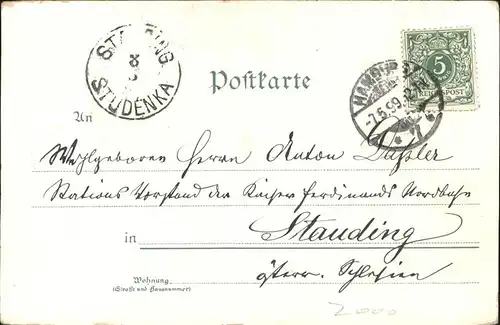 STAUDING
8
5
STUDENKA
Postkarte
HAMBURG
-7.5.99.
5
REICHSPOST
An
Wohlgeboren Herrn Anton Daßler
Stations Vorstand der Kaiser Ferdinands Nordbahn
in Stauding
österr. Schlesien
Wohnung
(Straße und Hausnummer)
2000